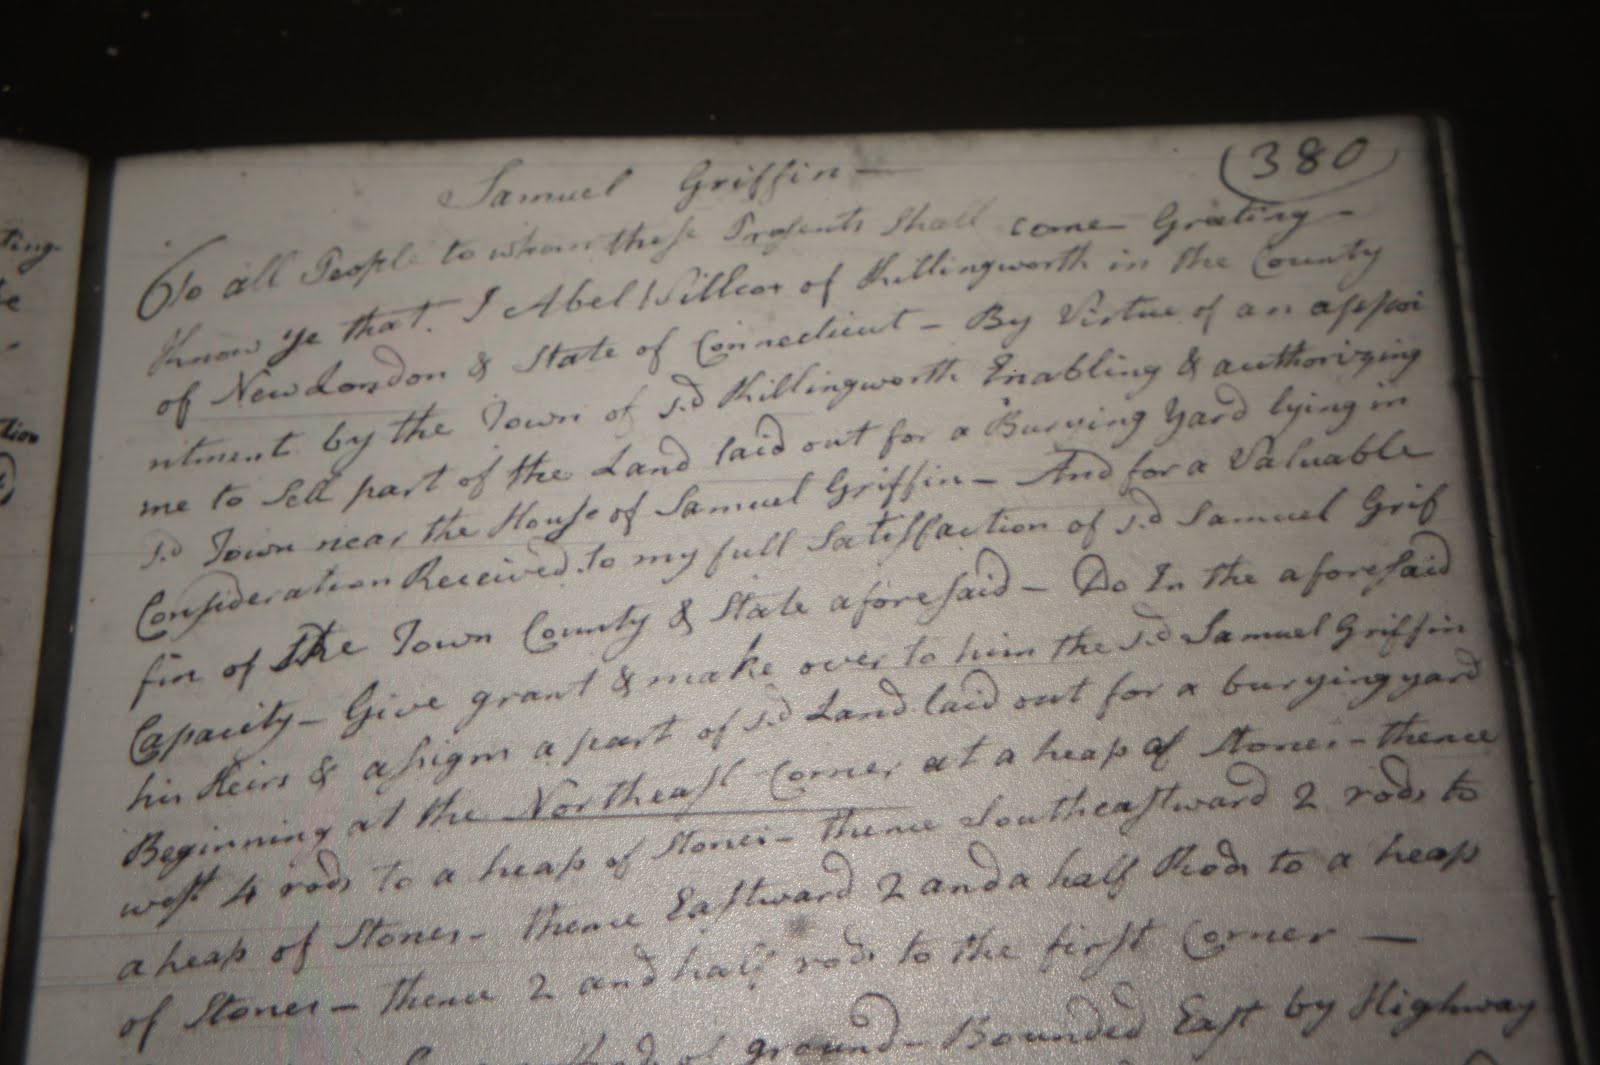 (380)
Samuel Griffin —
To all People to whom these Presents Shall come Greeting —
Know ye that I Abel Willcox of Killingworth in the County
of New London & State of Connecticut — By Virtue of an appoi
ntment by the Town of s.d Killingworth Enabling & authorizing
me to Sell part of the Land laid out for a Burying Yard lying in
s.d Town near the House of Samuel Griffin — And for a Valuable
Consideration Received to my full Satisfaction of s.d Samuel Grif
fin of the Town County & State aforesaid — Do In the aforesaid
Capacity — Give grant & make over to him the s.d Samuel Griffin
his Heirs & assigns a part of s.d Land laid out for a burying yard
Beginning at the Northeast Corner at a heap of Stones — thence
west 4 rods to a heap of Stones — thence Southeastward 2 rods to
a heap of Stones — thence Eastward 2 and a half Rods to a heap
of Stones — thence 2 and half rods to the first Corner —
of ground — Bounded East by Highway
ting
tion